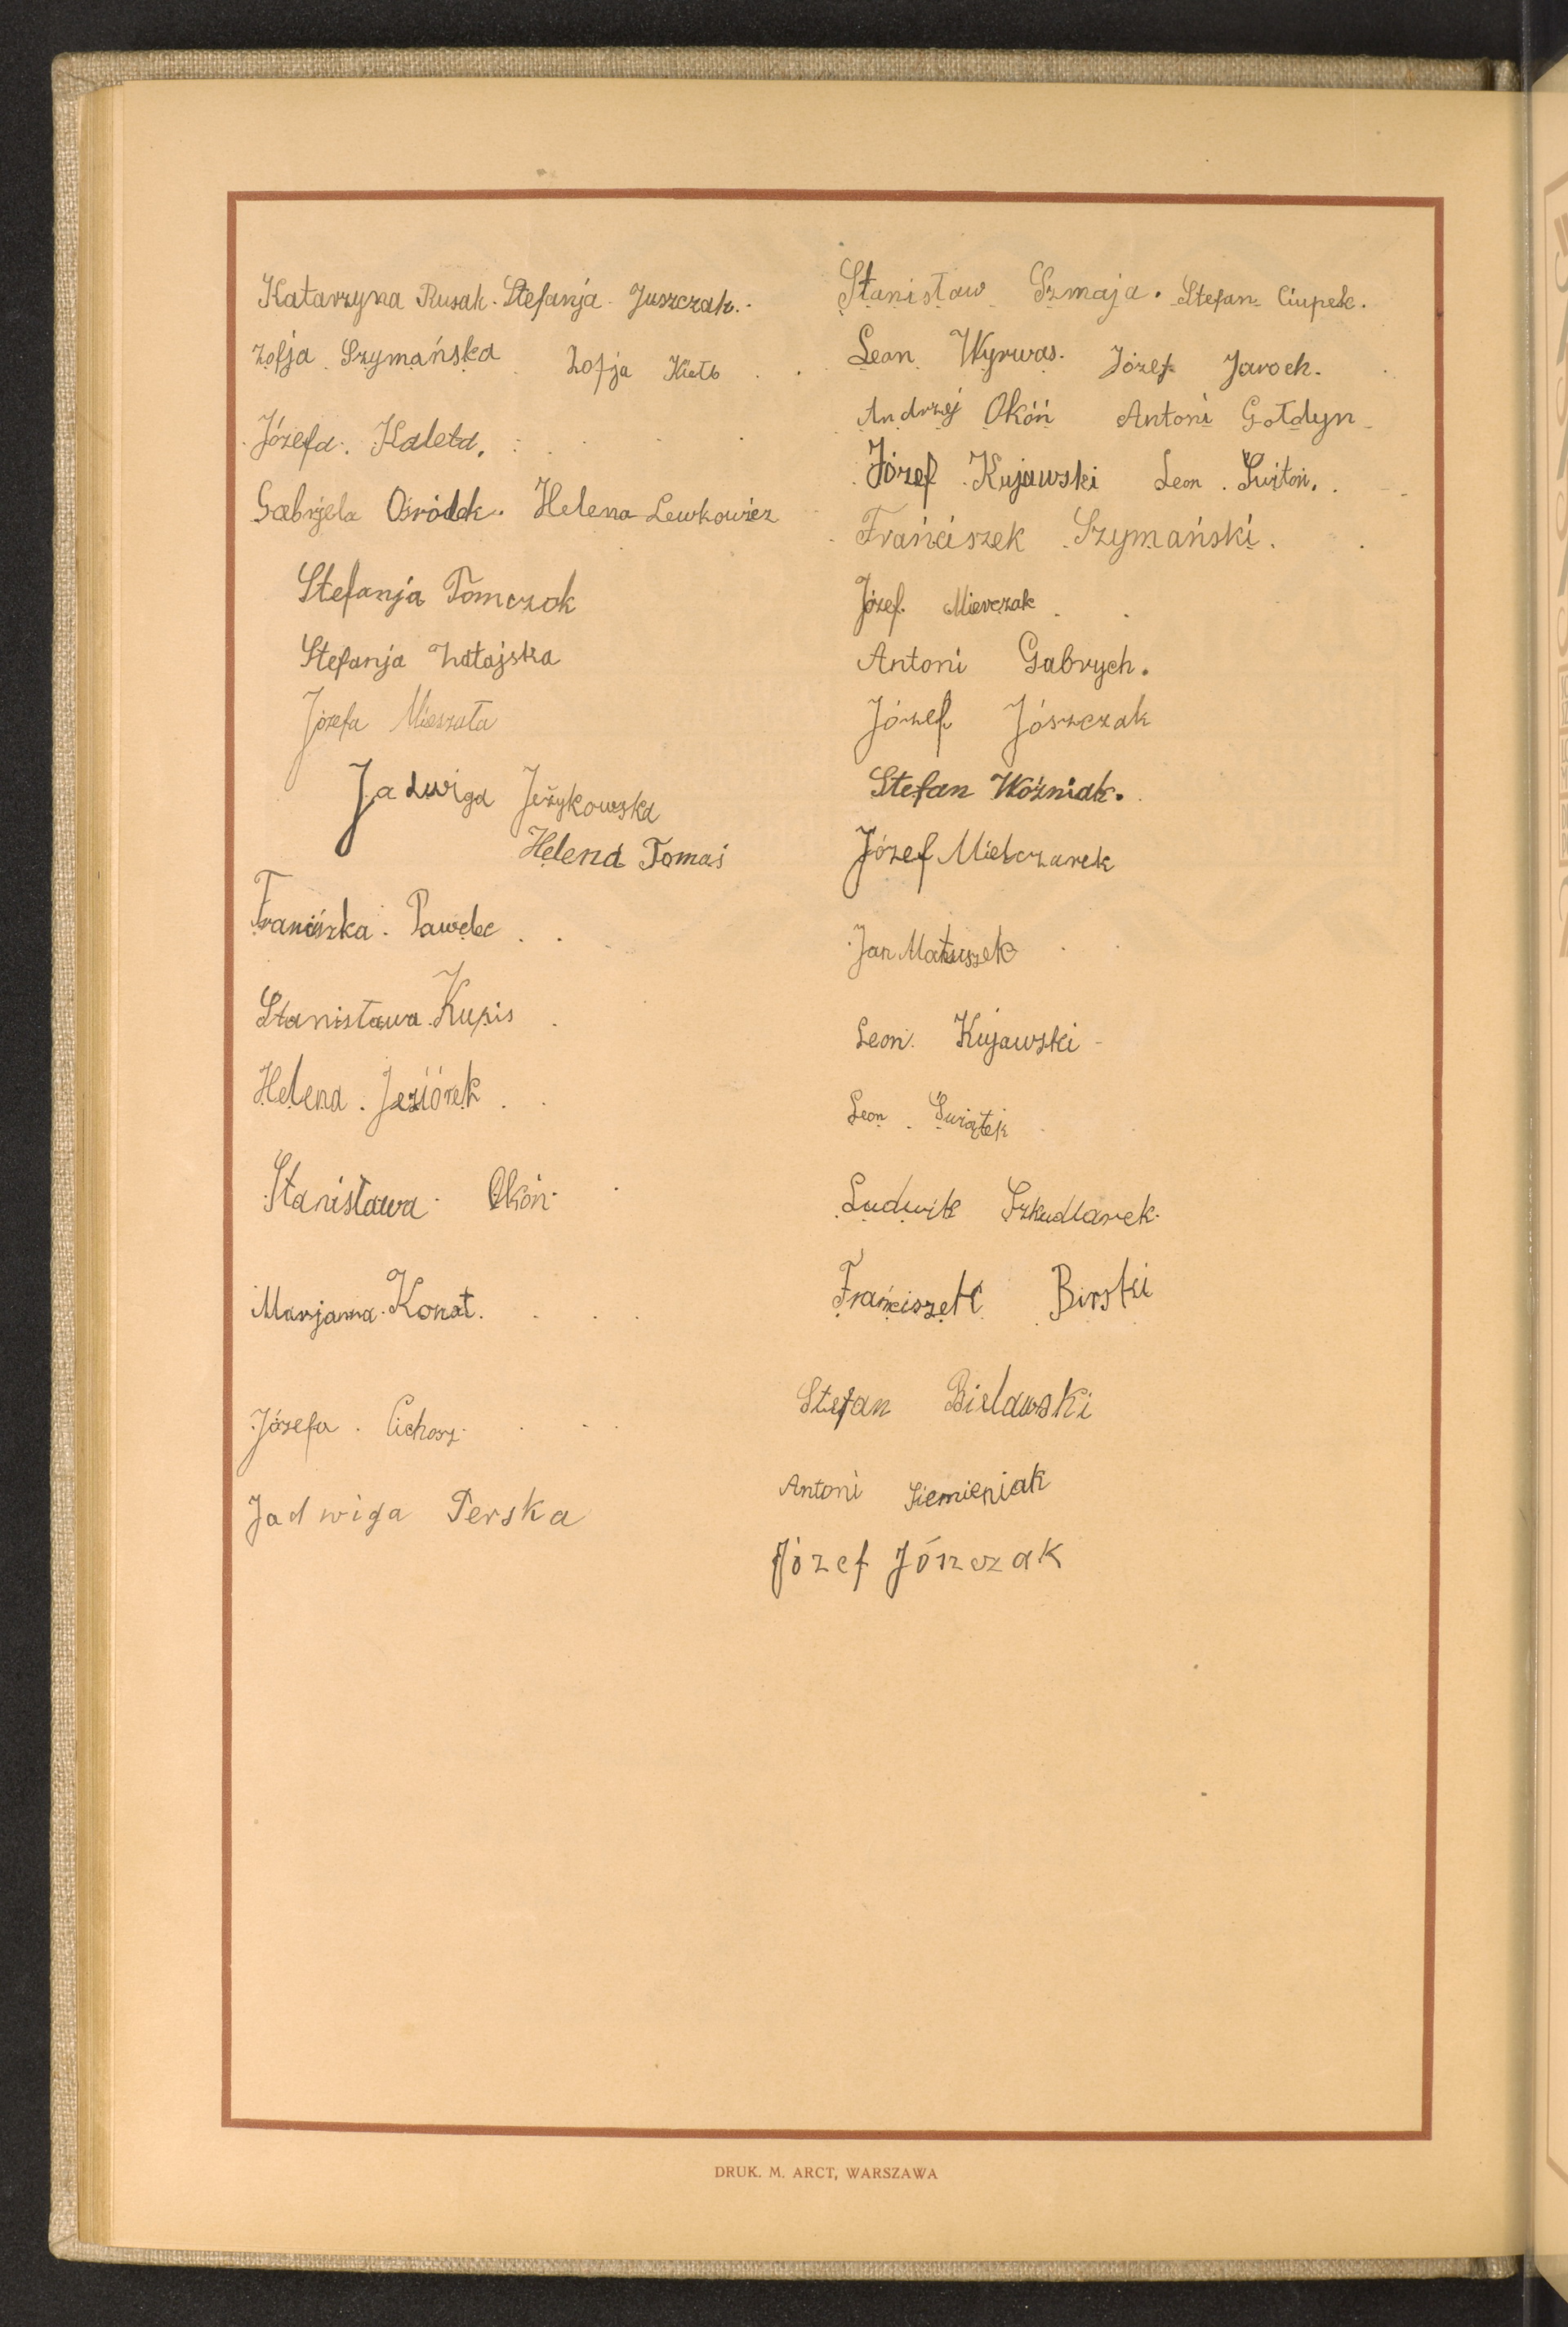 Katarzyna Rusak. Stefanja Juszczak.
Zofja Szymańska Zofja Kiełb
Józefa. Kaleta.
Gabrjela Ośródek. Helena Lewkowicz
Stefanja Tomczak
Stefanja Watajska
Józefa Mieszała
Jadwiga Jeżykowska
Helena Tomaś
Franciszka Pawelec
Stanisława Kupis
Helena Jeziórek
Stanisława Okoń
Marjanna Konat.
Józefa Cichosz
Jadwiga Perska
Stanisław Szmaja. Stefan Ciupek.
Leon Wyrwas. Józef Jaroch.
Andrzej Okóń Antoni Gołdyn
Józef Kujawski Leon Świtoń.
Frańciszek Szymański.
Józef Mierczak
Antoni Gabrych.
Józef Jószczak
Stefan Woźniak.
Józef Mielczarek
Jan Matuszek
Leon Kujawski
Leon Świątek
Ludwik Szkudlarek
Frańciszek Birski
Stefan Bielawski
Antoni Siemieniak
Józef Jóńczak
DRUK. M. ARCT, WARSZAWA